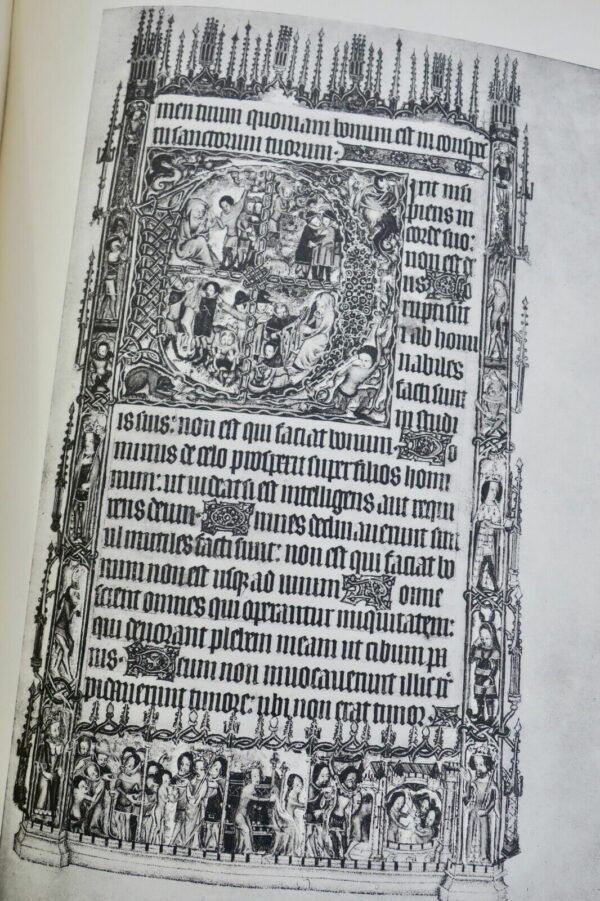 men tuum quoniam bonum est in conspec
tu sanctorum tuorum.
Dixit insi
piens in
corde suo:
non est de
us Co
rupti sunt
et ab homi
nabiles
facti sunt
in studi
is suis: non est qui faciat bonum. Do
minus de celo prospexit super filios homi
num: ut videat si est intelligens aut requi
rens deum. Omnes declinaverunt sim
ul inutiles facti sunt: non est qui faciat bo
num non est usque ad unum Nonne
scient omnes qui operantur iniquitatem:
qui devorant plebem meam ut cibum pa
nis. Deum non invocaverunt illic t
pidaverunt timore: ubi non erat timor.